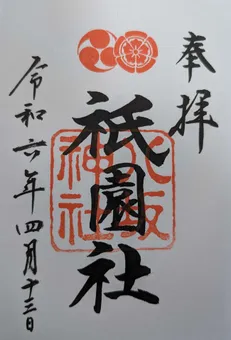 奉拝
祇園社
八坂神社
令和六年四月十三日